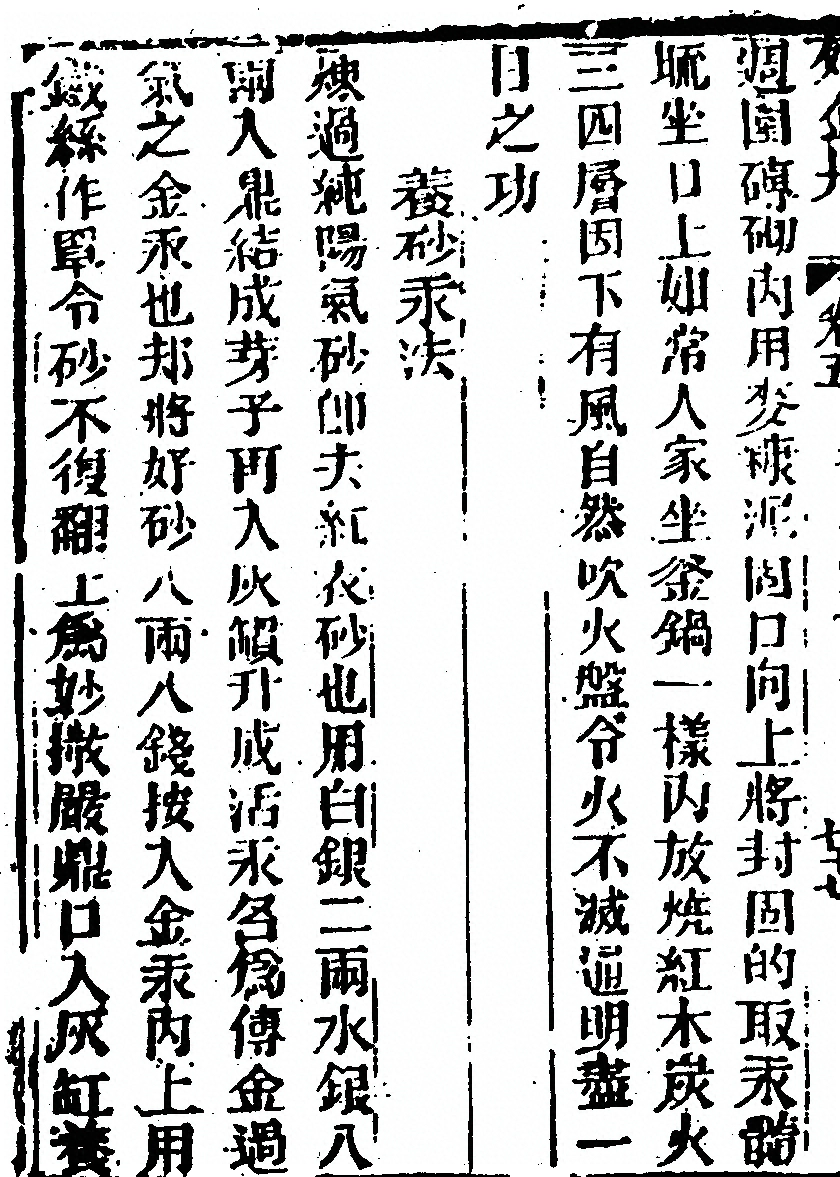 卷五
七十七
週圍磚砌內用麥糠泥固口向上將封固的取汞髓
㼽坐口上如常人家坐釜鍋一樣內放燒紅木炭火
三四層因下有風自然吹火盤令火不滅逼明盡一
日之功
養砂汞法
煉過純陽氣砂卽夫紅衣砂也用白銀二兩水銀八
兩入鼎結成芽子再入灰缸升成活汞名爲傳金過
氣之金汞也却將好砂八兩八錢按入金汞內上用
鐵絲作罩令砂不復翻上爲妙撳嚴鼎口入灰缸養